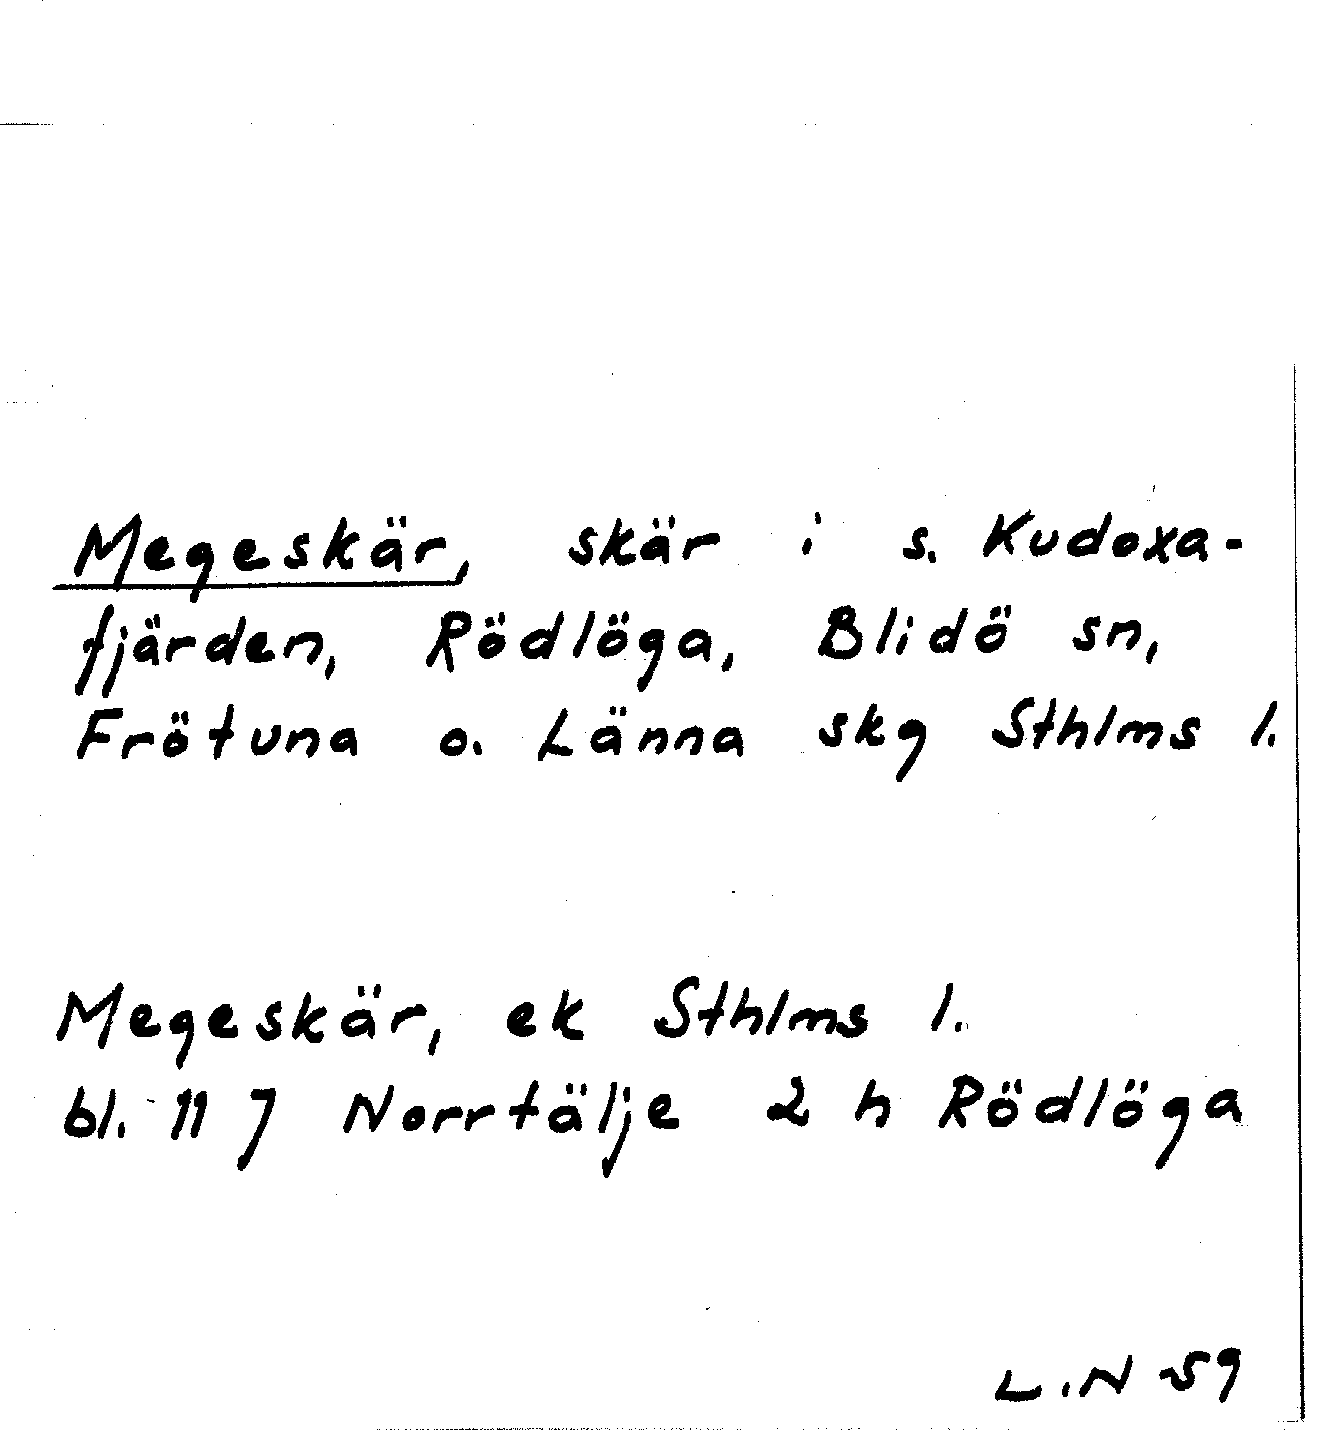 Megeskär, skär i s. Kudoxa-
fjärden, Rödlöga, Blidö sn,
Frötuna o. Länna skg Sthlms l.
Megeskär, ek Sthlms l.
bl. 11 7 Norrtälje 2 h Rödlöga
L.N -59